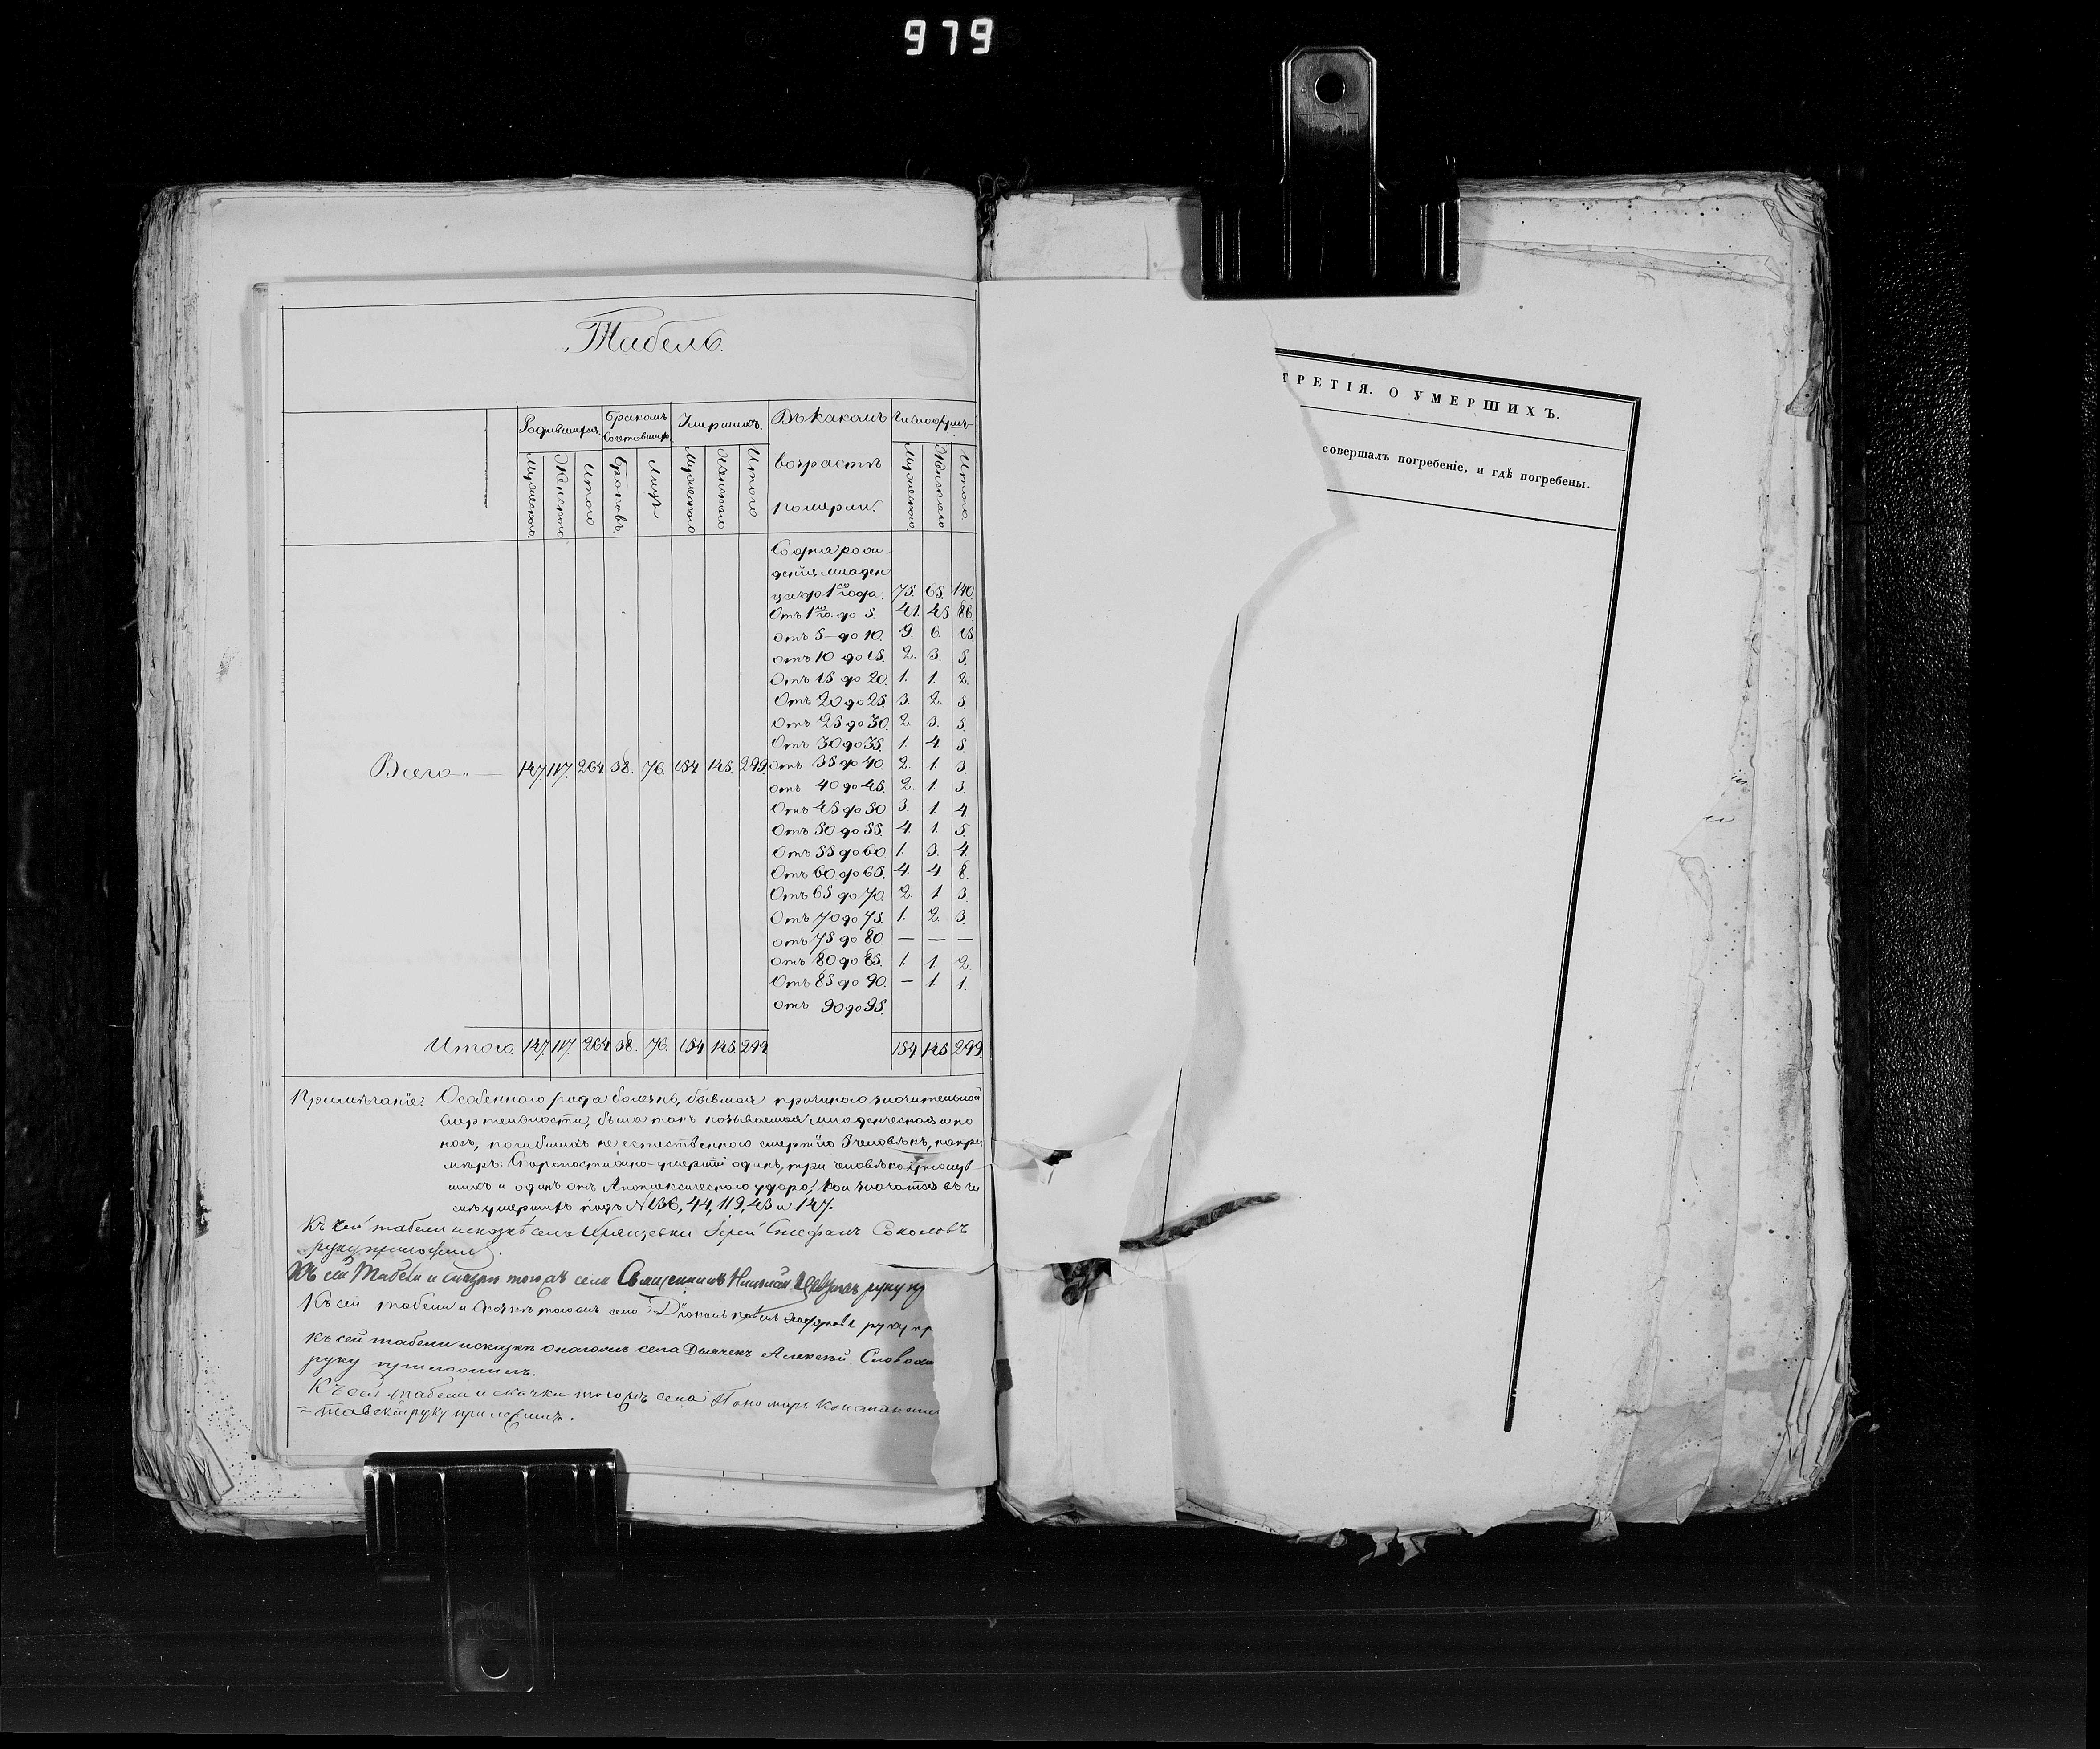 979
Табель.
Родившихся. Бракомъ Сочетавшихся Умершихъ. Въ какомъ возрастѣ померли. Число душъ.
Мужескаго Женскаго Итого Браковъ. Лицъ Мужескаго Женскаго Итого Мужескаго. Женскаго Итого.
Со дня рож-
денія младен
цы до 1го года. 75. 65. 140.
Отъ 1го до 5. 41. 45 86.
отъ 5- до 10. 9. 6. 15.
отъ 10 до 15. 2. 3. 5.
Отъ 15 до 20. 1. 1. 2.
Отъ 20 до 25. 3. 2. 5.
отъ 25 до 30. 2. 3. 5.
Отъ 30 до 35. 1. 4. 5.
Всего „ — 147. 117. 264 38. 76. 154 145. 299. отъ 35 до 40. 2. 1. 3.
отъ 40 до 45. 2. 1. 3.
Отъ 45 до 50 3. 1 4.
Отъ 50 до 55. 4. 1. 5.
Отъ 55 до 60. 1. 3. 4.
Отъ 60. до 65. 4. 4. 8.
Отъ 65 до 70. 2. 1 3.
Отъ 70 до 75. 1. 2. 3.
отъ 75 до 80. — — —
отъ 80 до 85. 1. 1. 2.
Отъ 85 до 90. — 1. 1.
отъ 90 до 95.
Итого 147. 117. 264 38. 76. 154 145. 299 154 145 299.
Примѣчаніе: Особеннаго рода болезнь, бывшая причиною значительной
смертельности, была такъ называемая младенческая и по
носъ, погибшихъ не естественною смертію 5 человѣкъ, напри
мѣръ: Скоропостижно-умершій одинъ, три человѣка
шихъ и одинъ отъ Апоплексическаго удара, кои значатся въ чи
слѣ умершихъ подъ № 136, 44, 119, 43 и 147.
Къ сей табели и сказкѣ села Іерей Стефанъ Соколовъ
руку приложилъ.
Къ сей Табели и сказки тогожъ села Священникъ Николай руку пр
Къ сей табели и тогожъ села Діаконъ руку пр
Къ сей табели и сказкѣ онагожъ села Дьячекъ Алексѣй
руку приложилъ.
Къ сей табели и скачки тогожъ села Пономарь
руку приложилъ.
ТРЕТІЯ. О УМЕРШИХЪ.
совершалъ погребеніе, и гдѣ погребены.